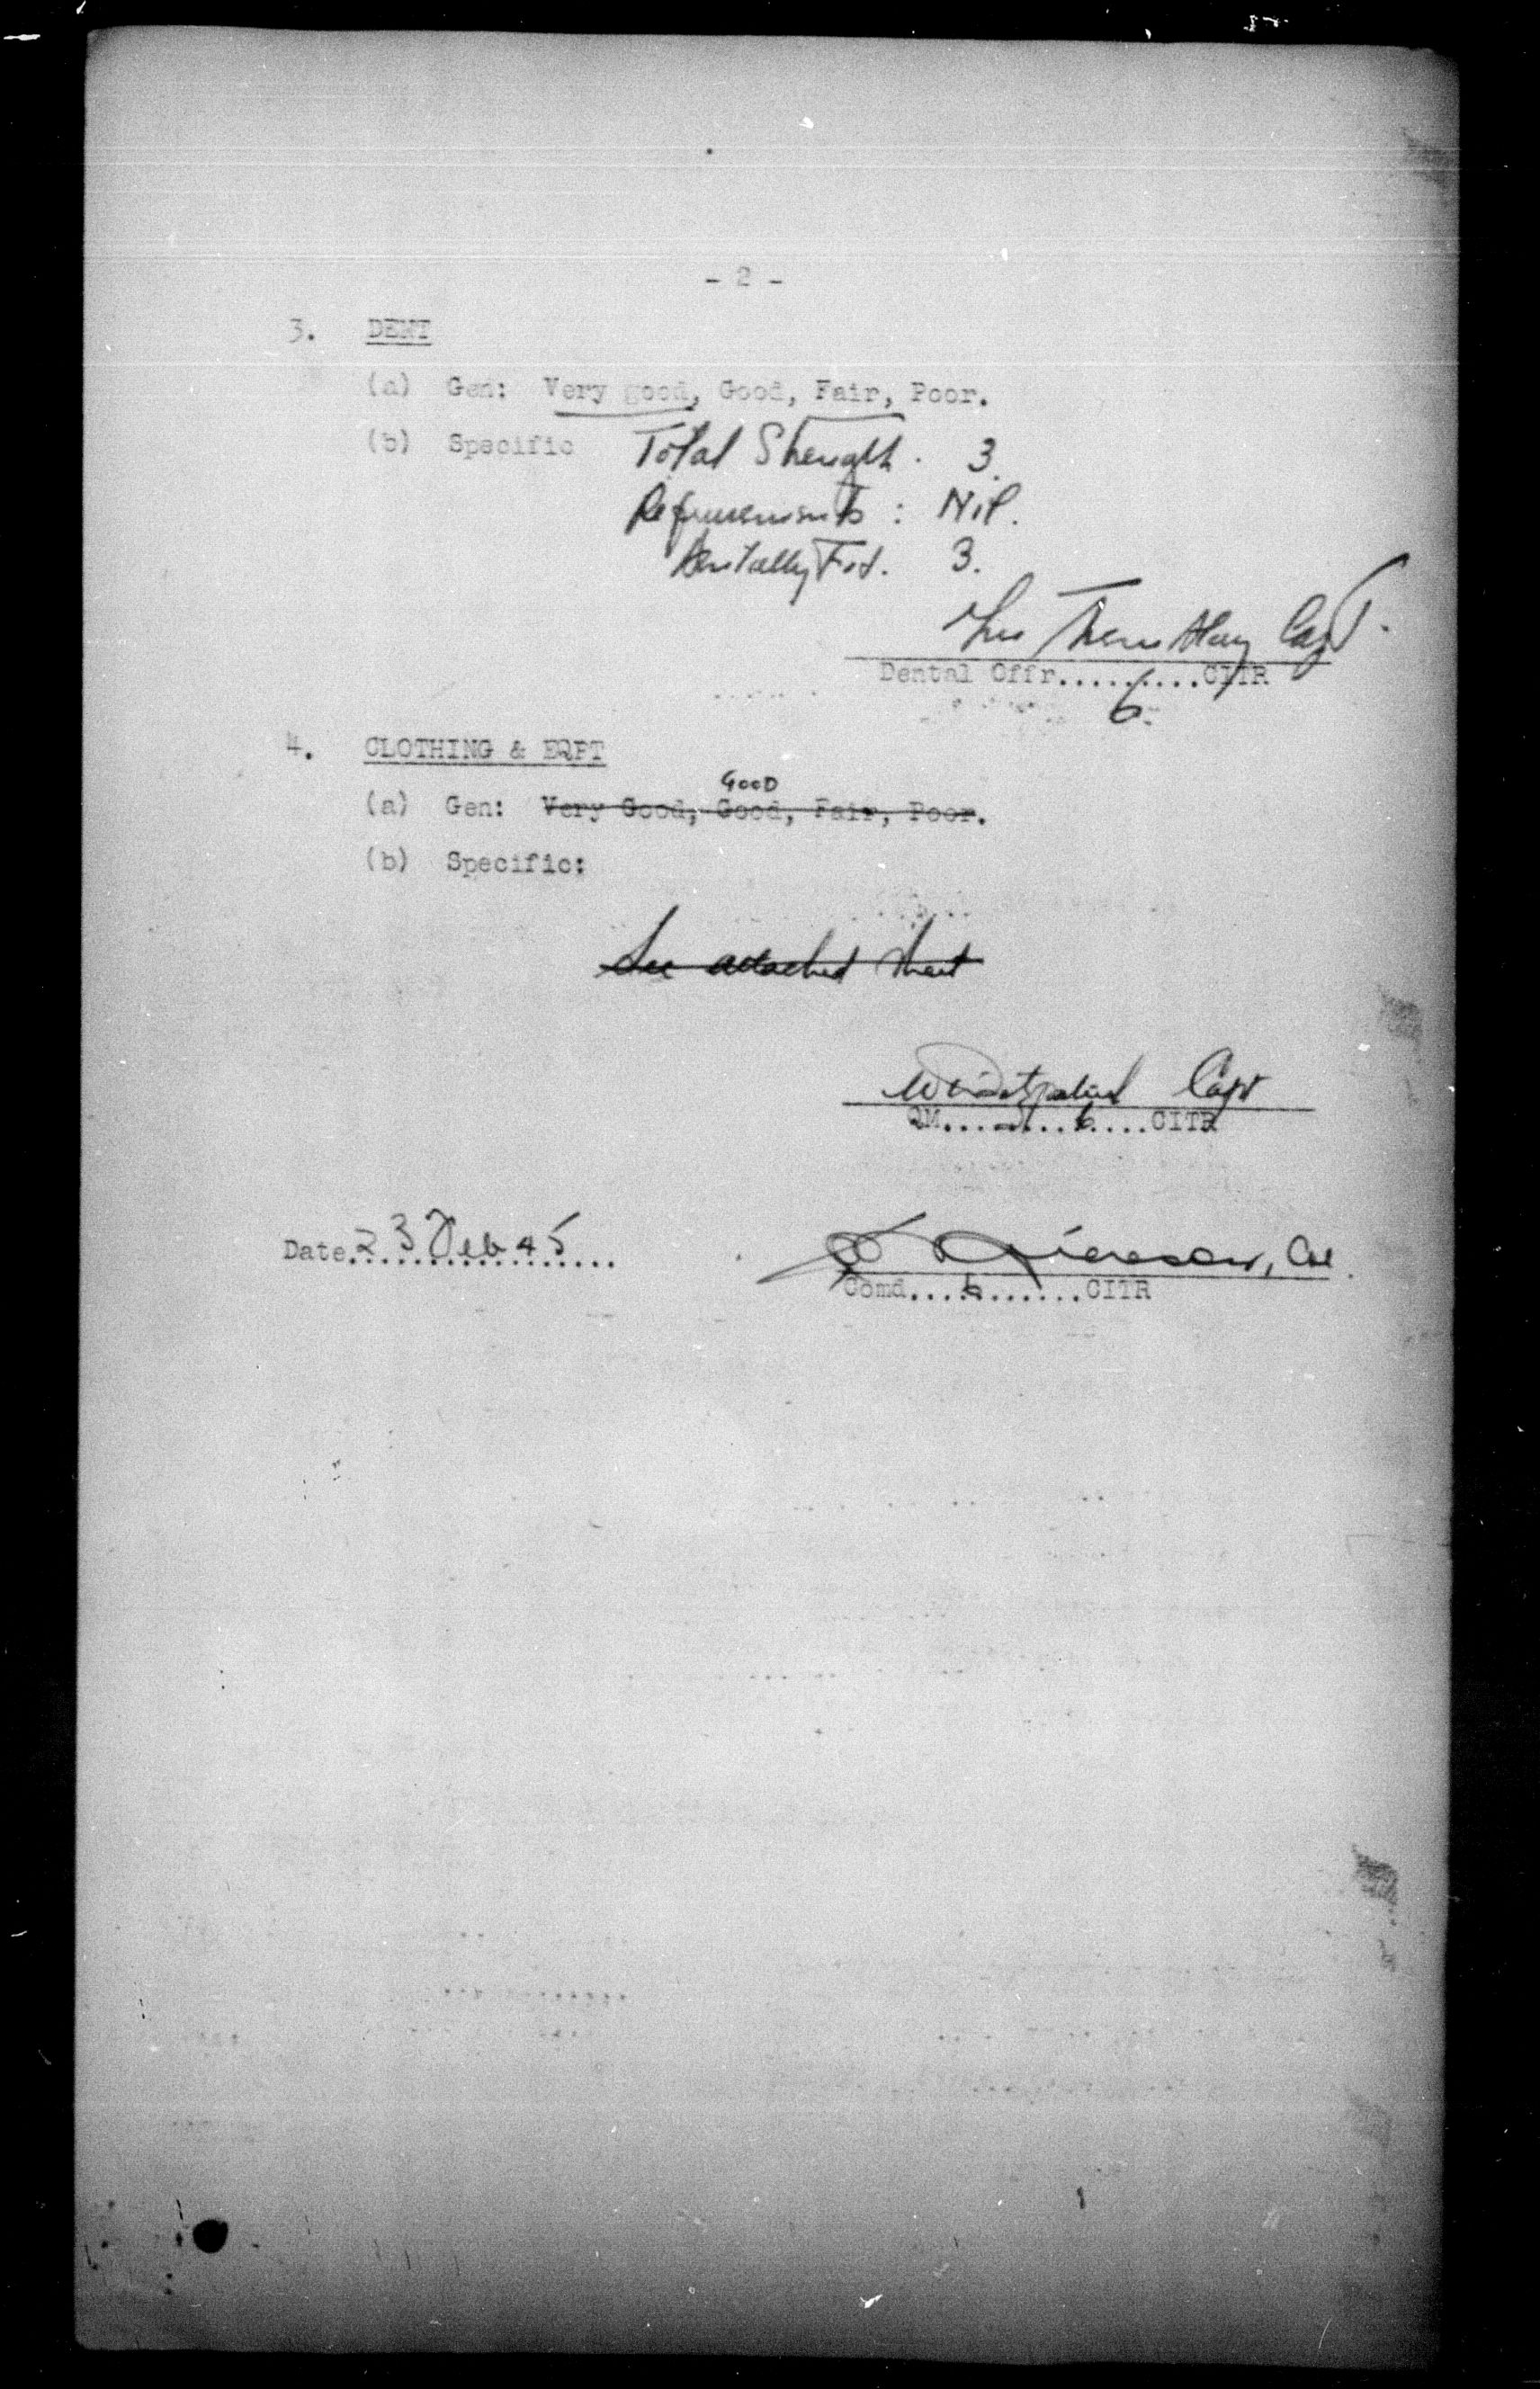 - 2 -
3. DENT
(a) Gen: Very good, Good, Fair, Poor.
(b) Specific Total Strength. 3.
Requirements : Nil.
Dentally Fit. 3.
Capt.
Dental Offr.........CITR
6
4. CLOTHING & EQPT
GOOD
(a) Gen: Very Good, Good, Fair, Poor.
(b) Specific:
See attached sheet
Capt
QM.......6....CITR
Date 23 Feb 45
Col
Comd....6......CITR